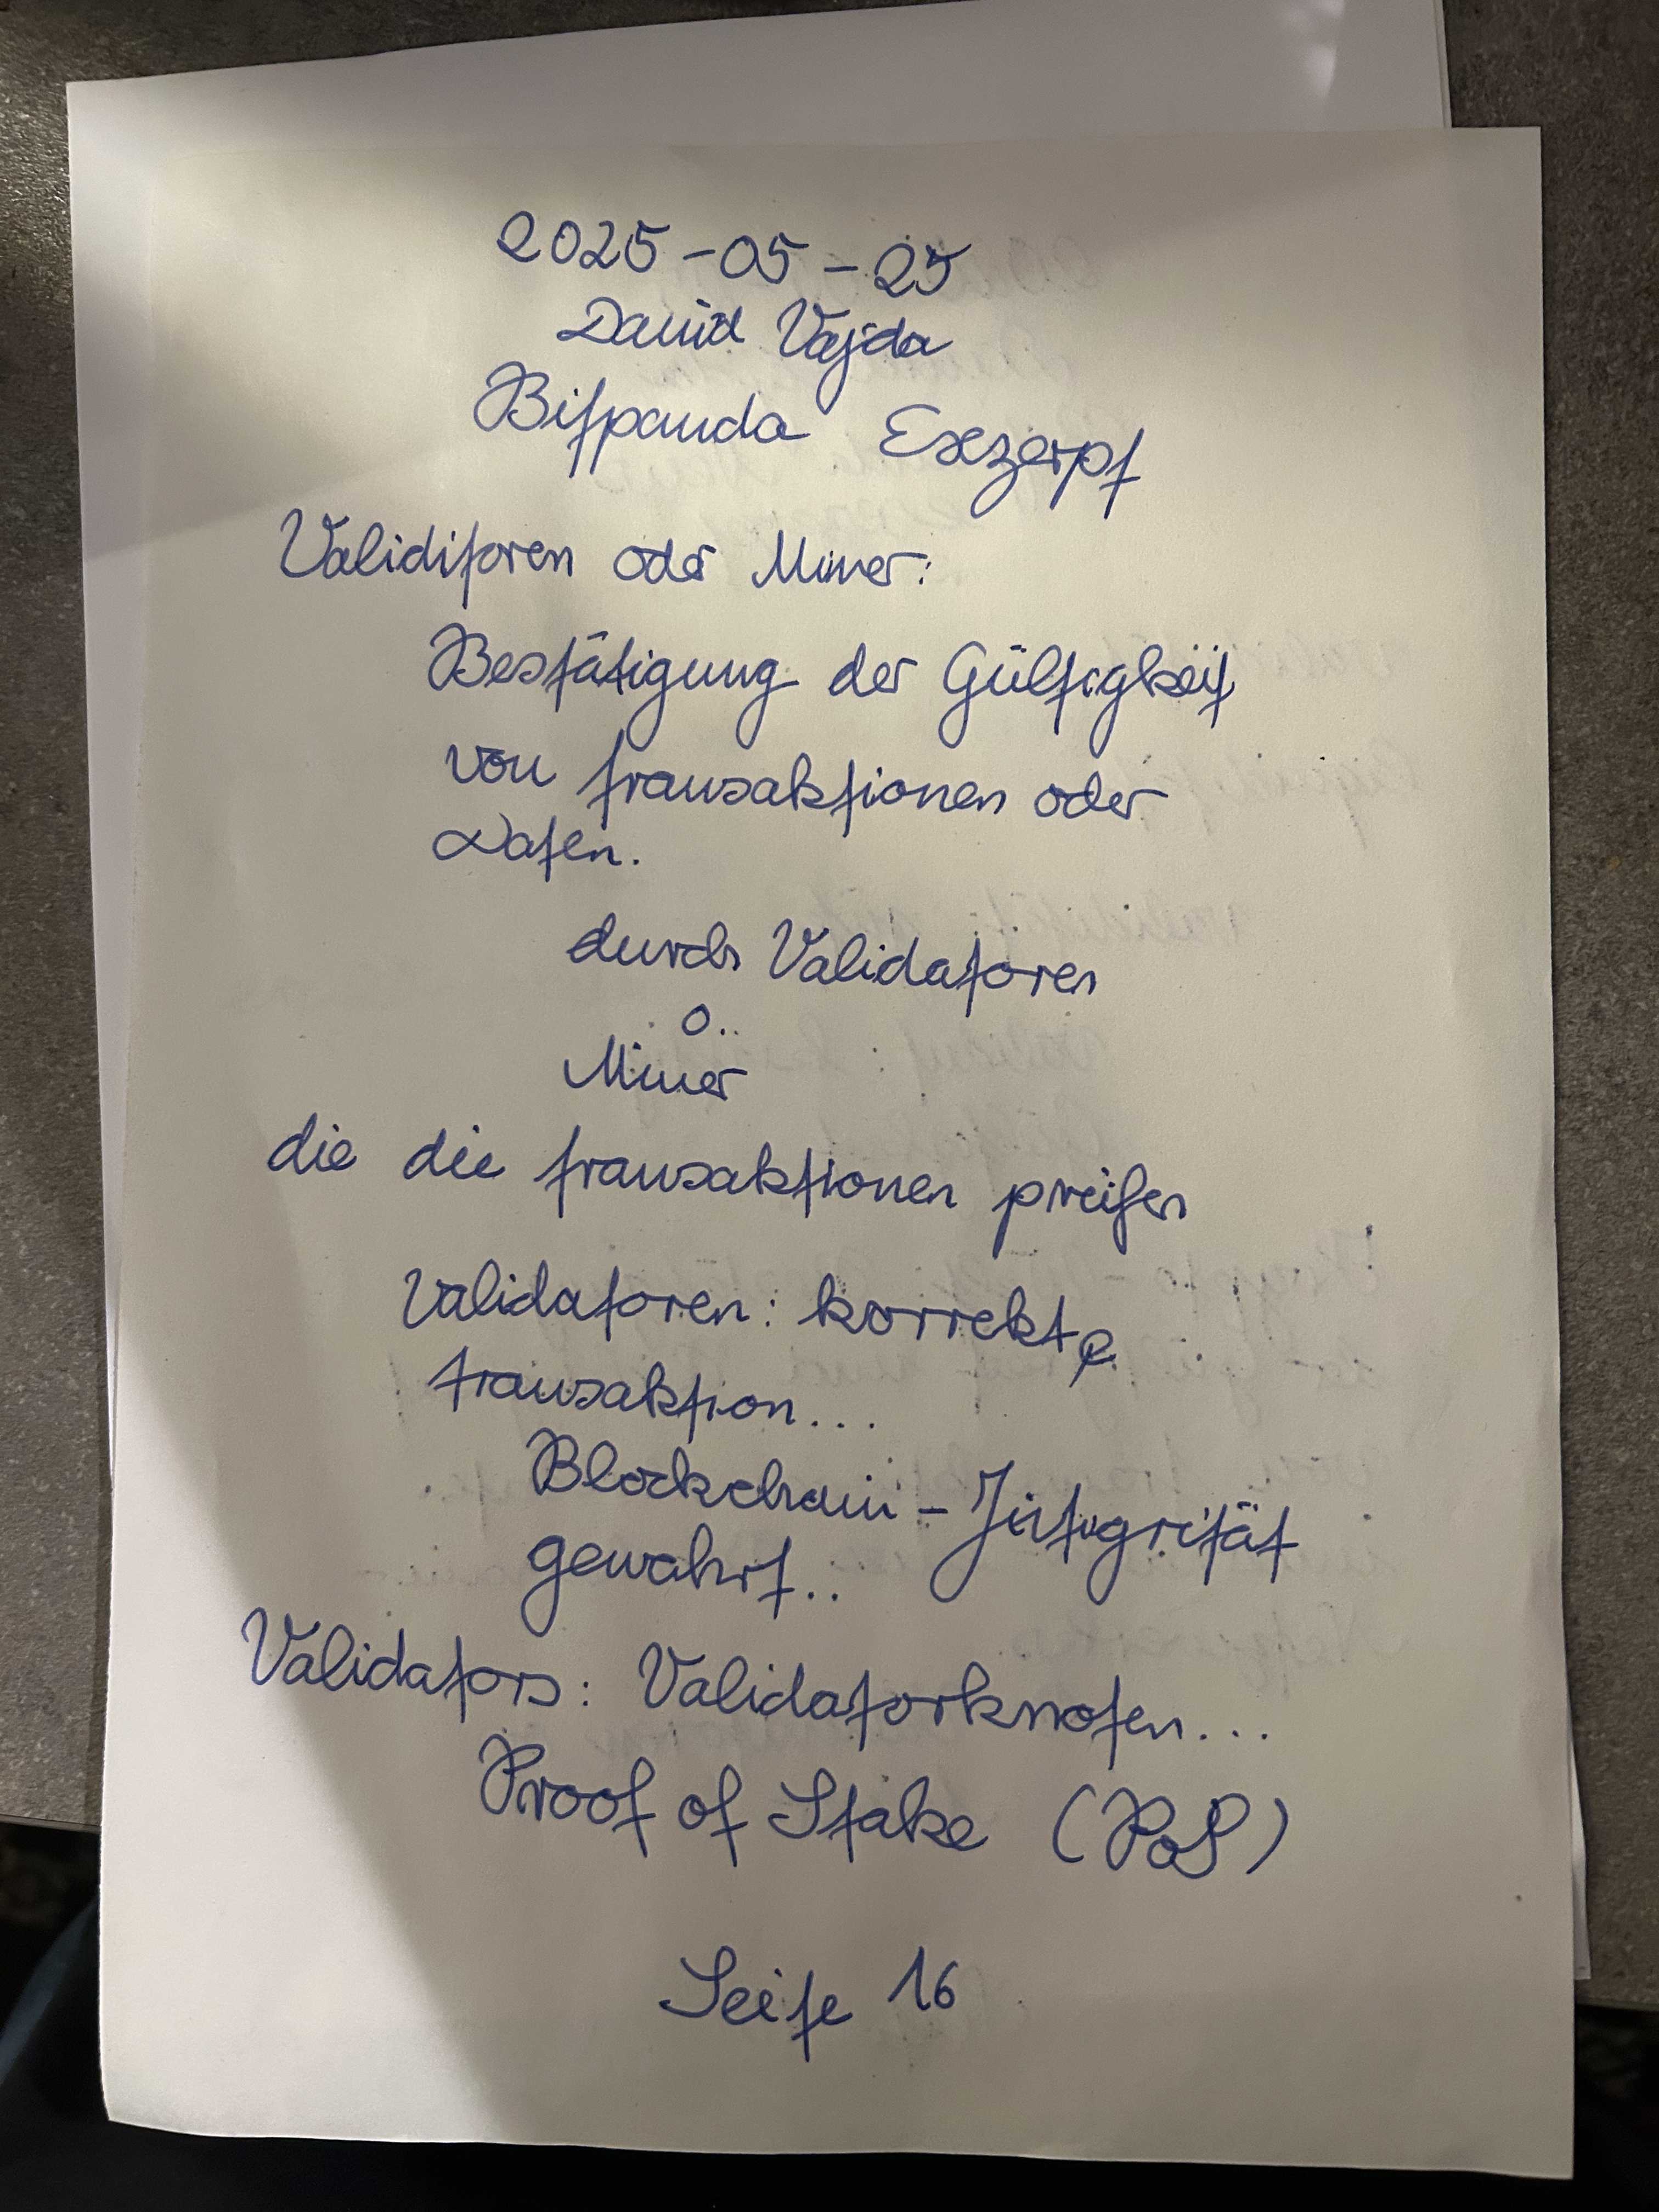 2025-05-25
David Vajda
Bitpanda Exzerpt
Validitoren oder Miner:
Bestätigung der Gültigkeit
von transaktionen oder
Daten.
durch Validatoren
o..
Miner
die die transaktionen preifen
Validatoren: korrekte
transaktion...
Blockchain-Integrität
gewahrt..
Validators: Validatorknoten...
Proof of Stake (PoS)
Seite 16